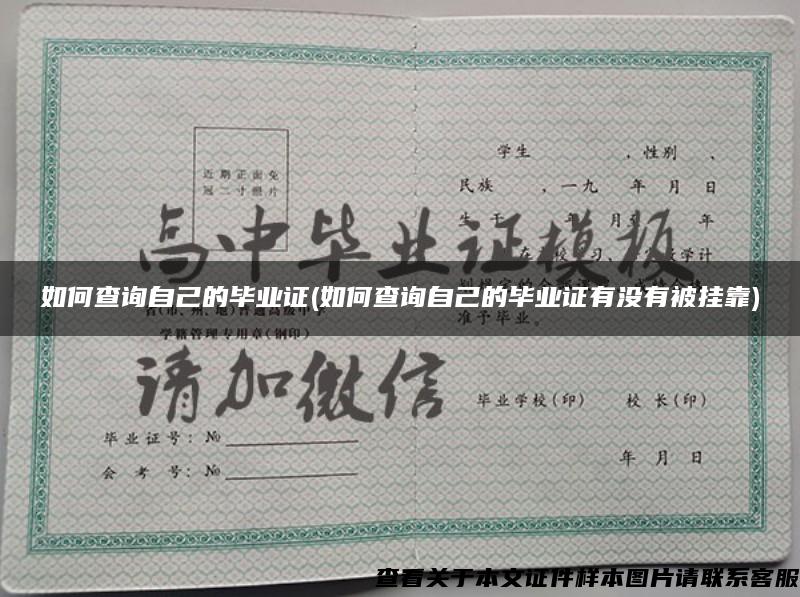 近期正面免
冠二寸照片
学生 ，性别 、
民族 ，一九 年 月 日
生于 年 月至 年
高中毕业证模板
如何查询自己的毕业证(如何查询自己的毕业证有没有被挂靠)
准予毕业。
学籍管理专用章(钢印)
请加微信
毕业学校(印) 校 长(印)
毕业证号：№
会 考 号：№
年 月 日
查看关于本文证件样本图片请联系客服